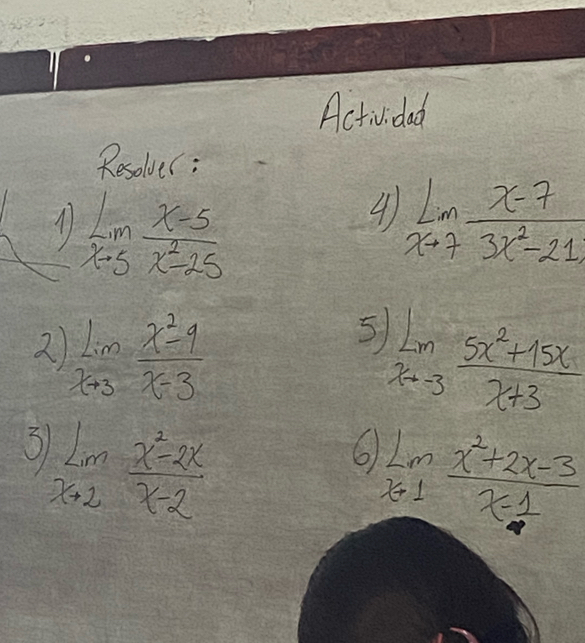 Actividad
Resolver:
1) Lim x→5 (x-5)/(x²-25)
2) Lim x→3 (x²-9)/(x-3)
3) Lim x→2 (x²-2x)/(x-2)
4) Lim x→7 (x-7)/(3x²-21x)
5) Lim x→-3 (5x²+15x)/(x+3)
6) Lim x→1 (x²+2x-3)/(x-1)